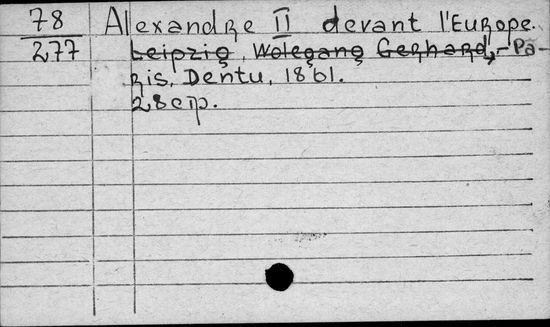 78 Alexandre II devant l'Europe.
277 Leipzig, Wolfgang Gerhard, - Pa-
ris, Dentu, 1861.
28 стр.